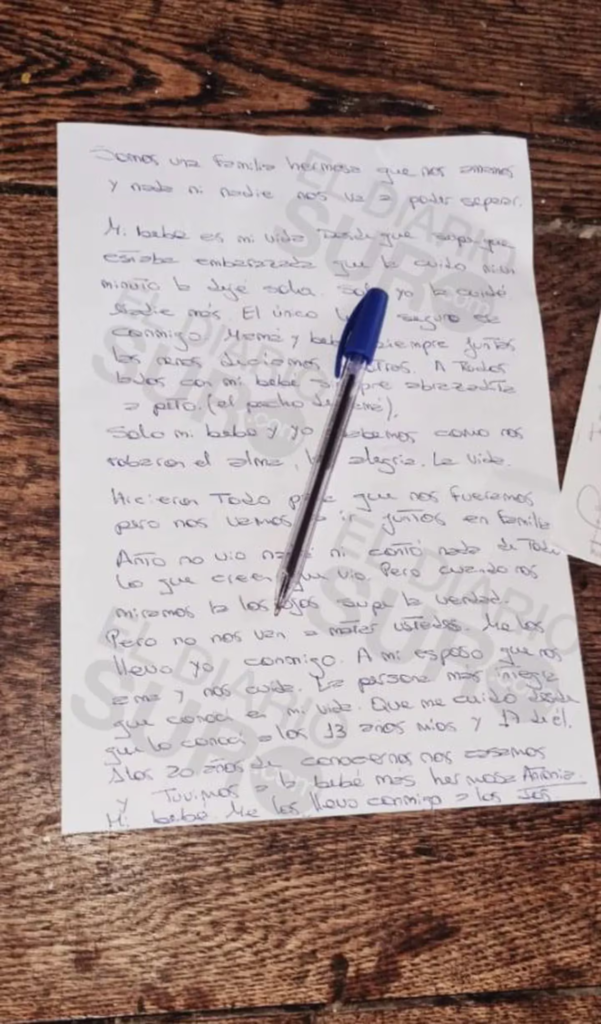 Somos una familia hermosa que nos amamos
y nada ni nadie nos va a poder separar.
Mi bebé es mi vida Desde que supe que
estaba embarazada que la cuido ni un
minuto la deje sola. Solo yo la cuidé
Nadie más. El único seguro es
conmigo Mamá y bebé siempre juntos
A Todos
lados con mi bebé siempre abrazadita
a pito. (el pecho de
Solo mi bebé y yo sabemos como nos
robaron el alma, la alegria, La vida.
Hicieron Todo para que nos fueramos
pero nos vamos a ir juntos en familia
Anto no vio nada ni contó nada de Todo
Lo que creen que vio. Pero cuando nos
miramos a los ojos supe la verdad.
Pero no nos van a matar ustedes. Me los
llevo yo conmigo. A mi esposo que nos
ama y nos cuida. La persona más integra
que conoci en mi vida. Que me cuido desde
que lo conoci a los 13 años mios y 17 de él.
A los 20 años de conocernos nos casamos
y Tuvimos a la bebé mas hermosa Antonia.
Mi bebé. Me los llevo conmigo a los
EL DIARIO
SUR.com
EL DIARIO
SUR.com
EL DIARIO
SUR.com
EL DIARIO
SUR.com